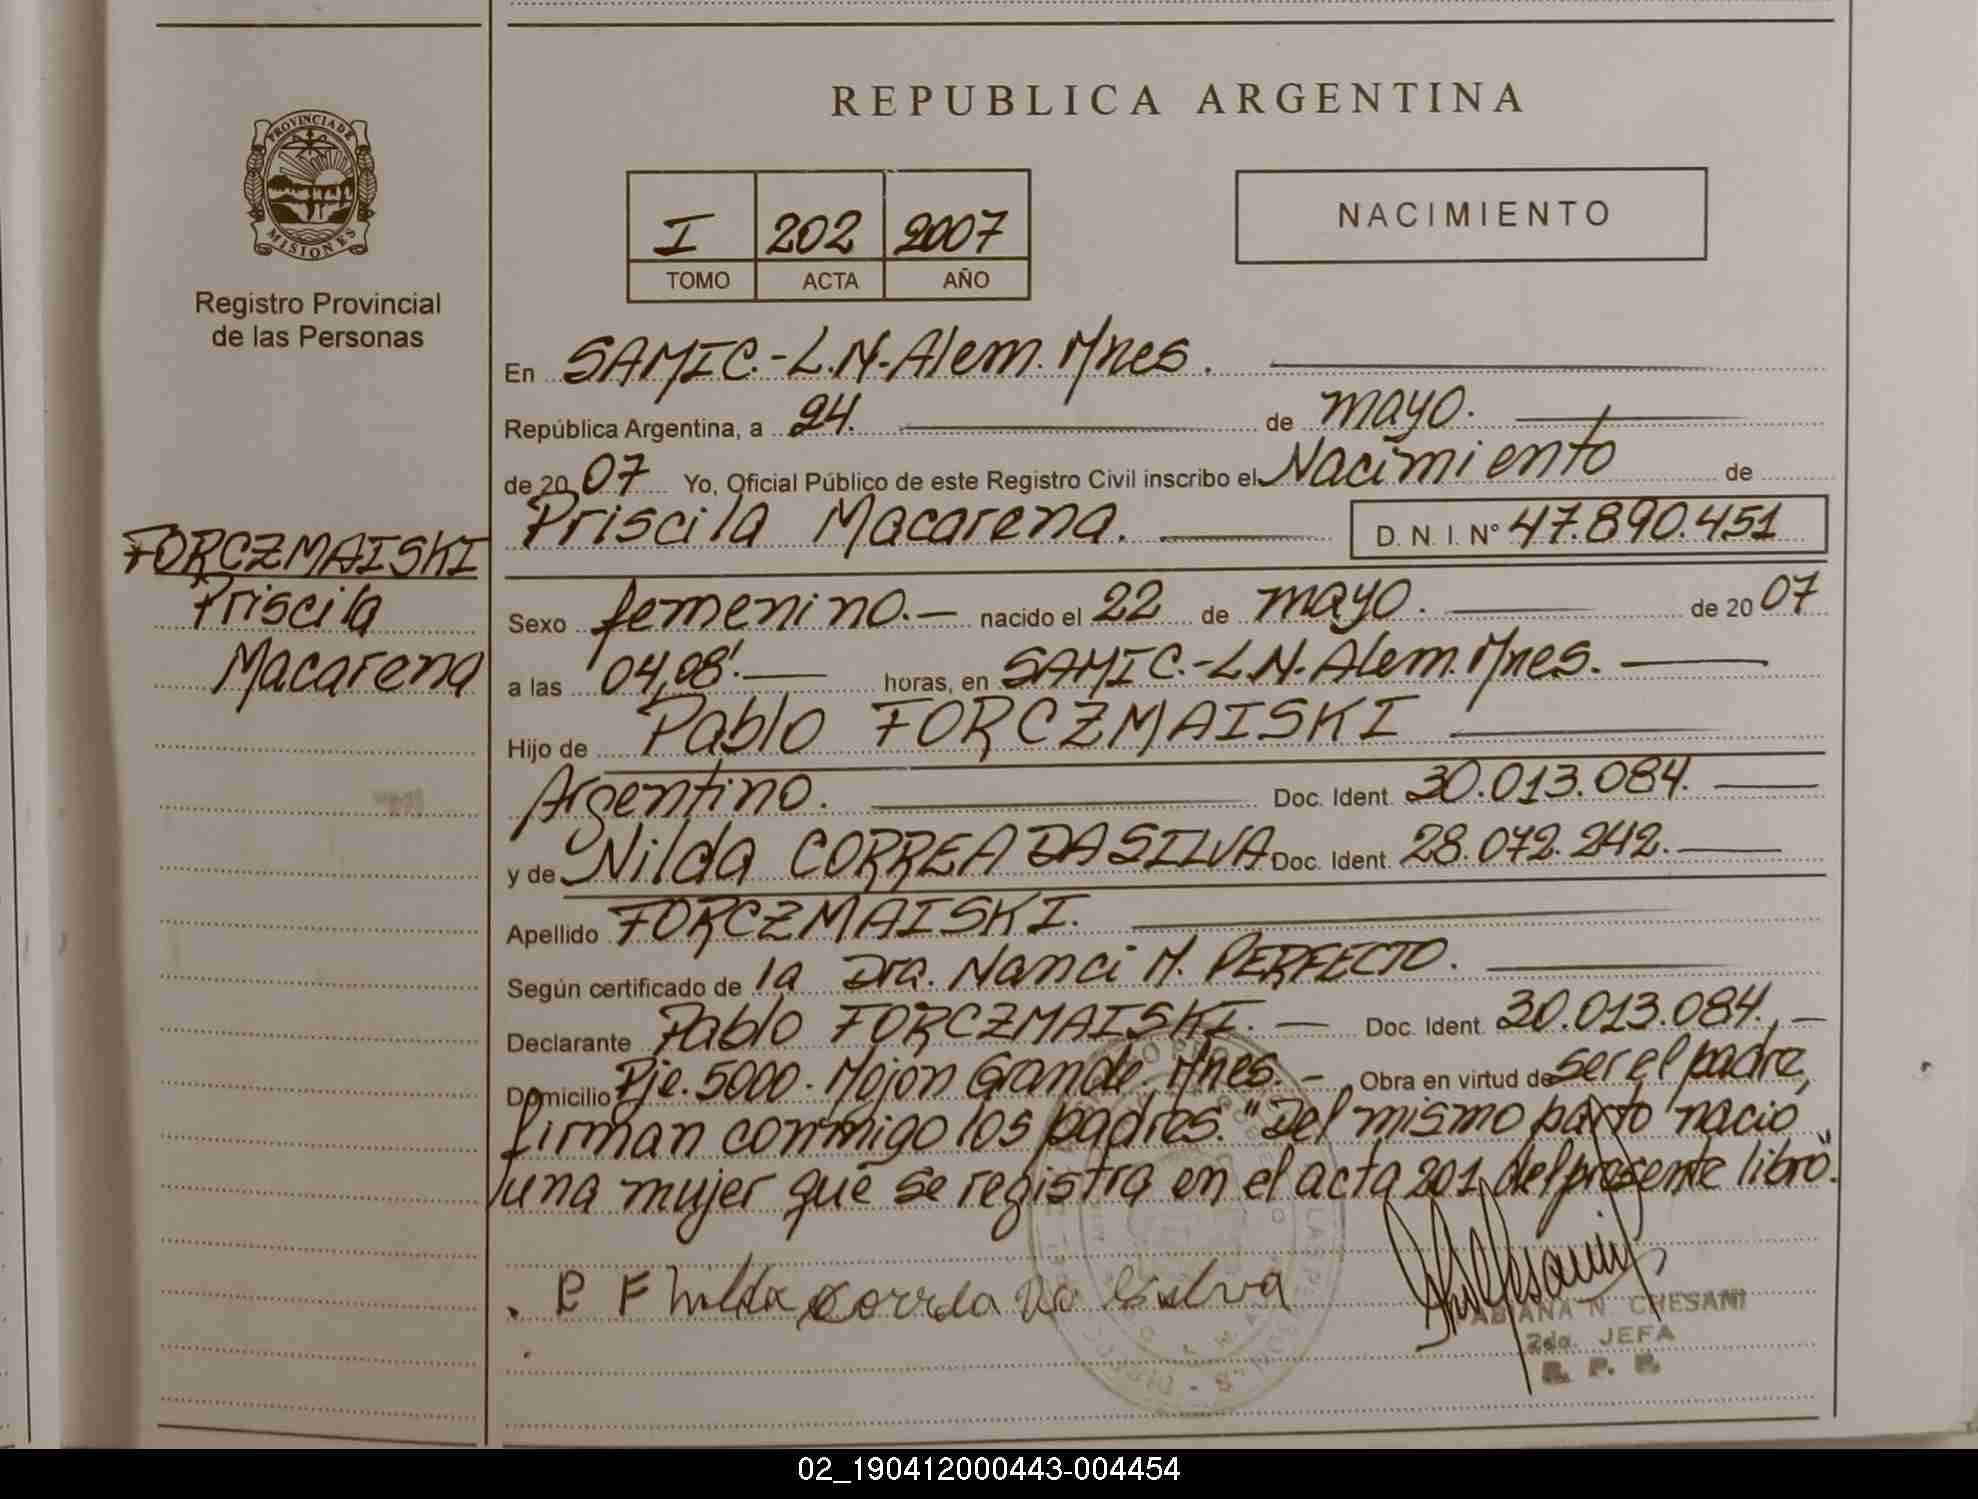 REPUBLICA ARGENTINA
PROVINCIA DE
MISIONES
Registro Provincial
de las Personas
I 202 2007
TOMO ACTA AÑO
NACIMIENTO
En SAMIC.-L.N.Alem.Mnes.
República Argentina, a 24. de mayo.
de 2007 Yo, Oficial Público de este Registro Civil inscribo el Nacimiento de
Priscila Macarena. D. N. I. N° 47.890.451
FORCZMAISKI
Priscila
Macarena
Sexo femenino.- nacido el 22 de mayo. de 2007
a las 04,08'. horas, en SAMIC.-L.N.Alem.Mnes.
Hijo de Pablo FORCZMAISKI
Argentino. Doc. Ident. 30.013.084.
y de Nilda CORREA DA SILVA Doc. Ident. 28.072.242.
Apellido FORCZMAISKI.
Según certificado de la Dra. Nanci M. PERFECTO.
Declarante Pablo FORCZMAISKI.- Doc. Ident. 30.013.084.,-
Domicilio Pje.5000.Mojon Grande.Mnes.- Obra en virtud de ser el padre,
firman conmigo los padres."Del mismo parto nacio
una mujer que se registra en el acta 201 del presente libro".
P F Nilda Correa Da Silva
FABIANA N. CHESANI
2da. JEFA
R. P. P.
02_190412000443-004454